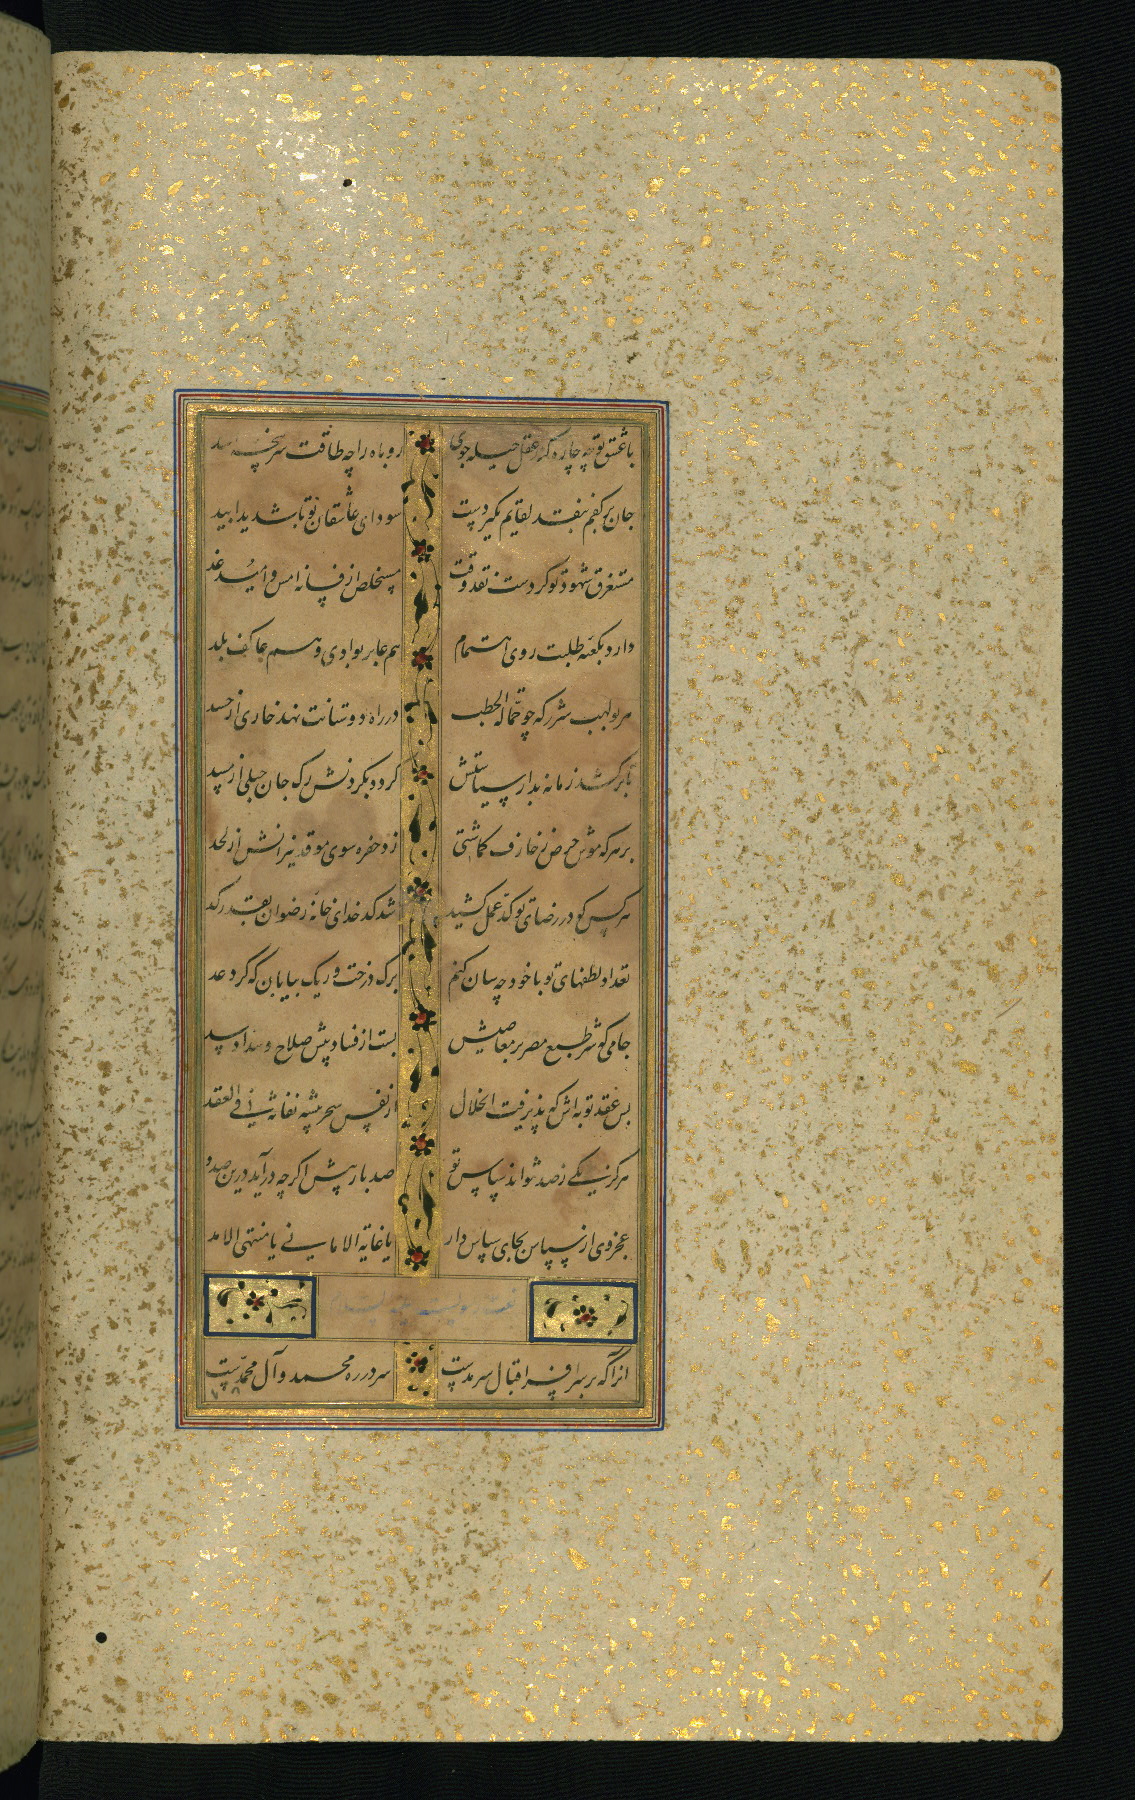 با عشق تو چه چاره کند عقل حیله جوی روباه را چه طاقت سرپنجه اسد
جان بر کفم بنقد لقایم بگیر دست سودای عاشقان تو نابد یدا بید
مستغرق شهود تو کردست نقد وقت مستخلص از فسانه امس و امید غد
دارد بکعبه طلبت روی اهتمام هم عابر بوادی و هم عاکف بلد
هر بولهب شرر که چو حمالة الحطب در راه دوستانت نهد خاری از حسد
برکشد زمانه بدار سیاستش گردد بگردنش رگ جان حبلی از مسد
بر هر که موش حوض زخارف گماشتی زد حفره سوی موقد نیرانش از لحد
هر کس کو در رضای تو کد عمل کشید شد کدخدای خانه رضوان بقدر کد
تعداد لطفهای تو با خود چه سان کنم برگ درخت و ریک بیابان که کرد عد
جامی که شر طبع مصر بر معاصیش بست از فساد پیش صلاح و سداد سد
بس عقد توبه اش که پذیرفت انحلال از نفس سحر پیشه نفاثة فی العقد
هرگز یکی ز صد نتواند سپاس تو صد بار پیش اگر چه درآید درین صدد
عجز وی از سپاس بجای سپاس دار یا غایة الامانی یا منتهی الامد
انرا که بر سر افسر اقبال سرمدست سر در ره محمد و آل محمدست